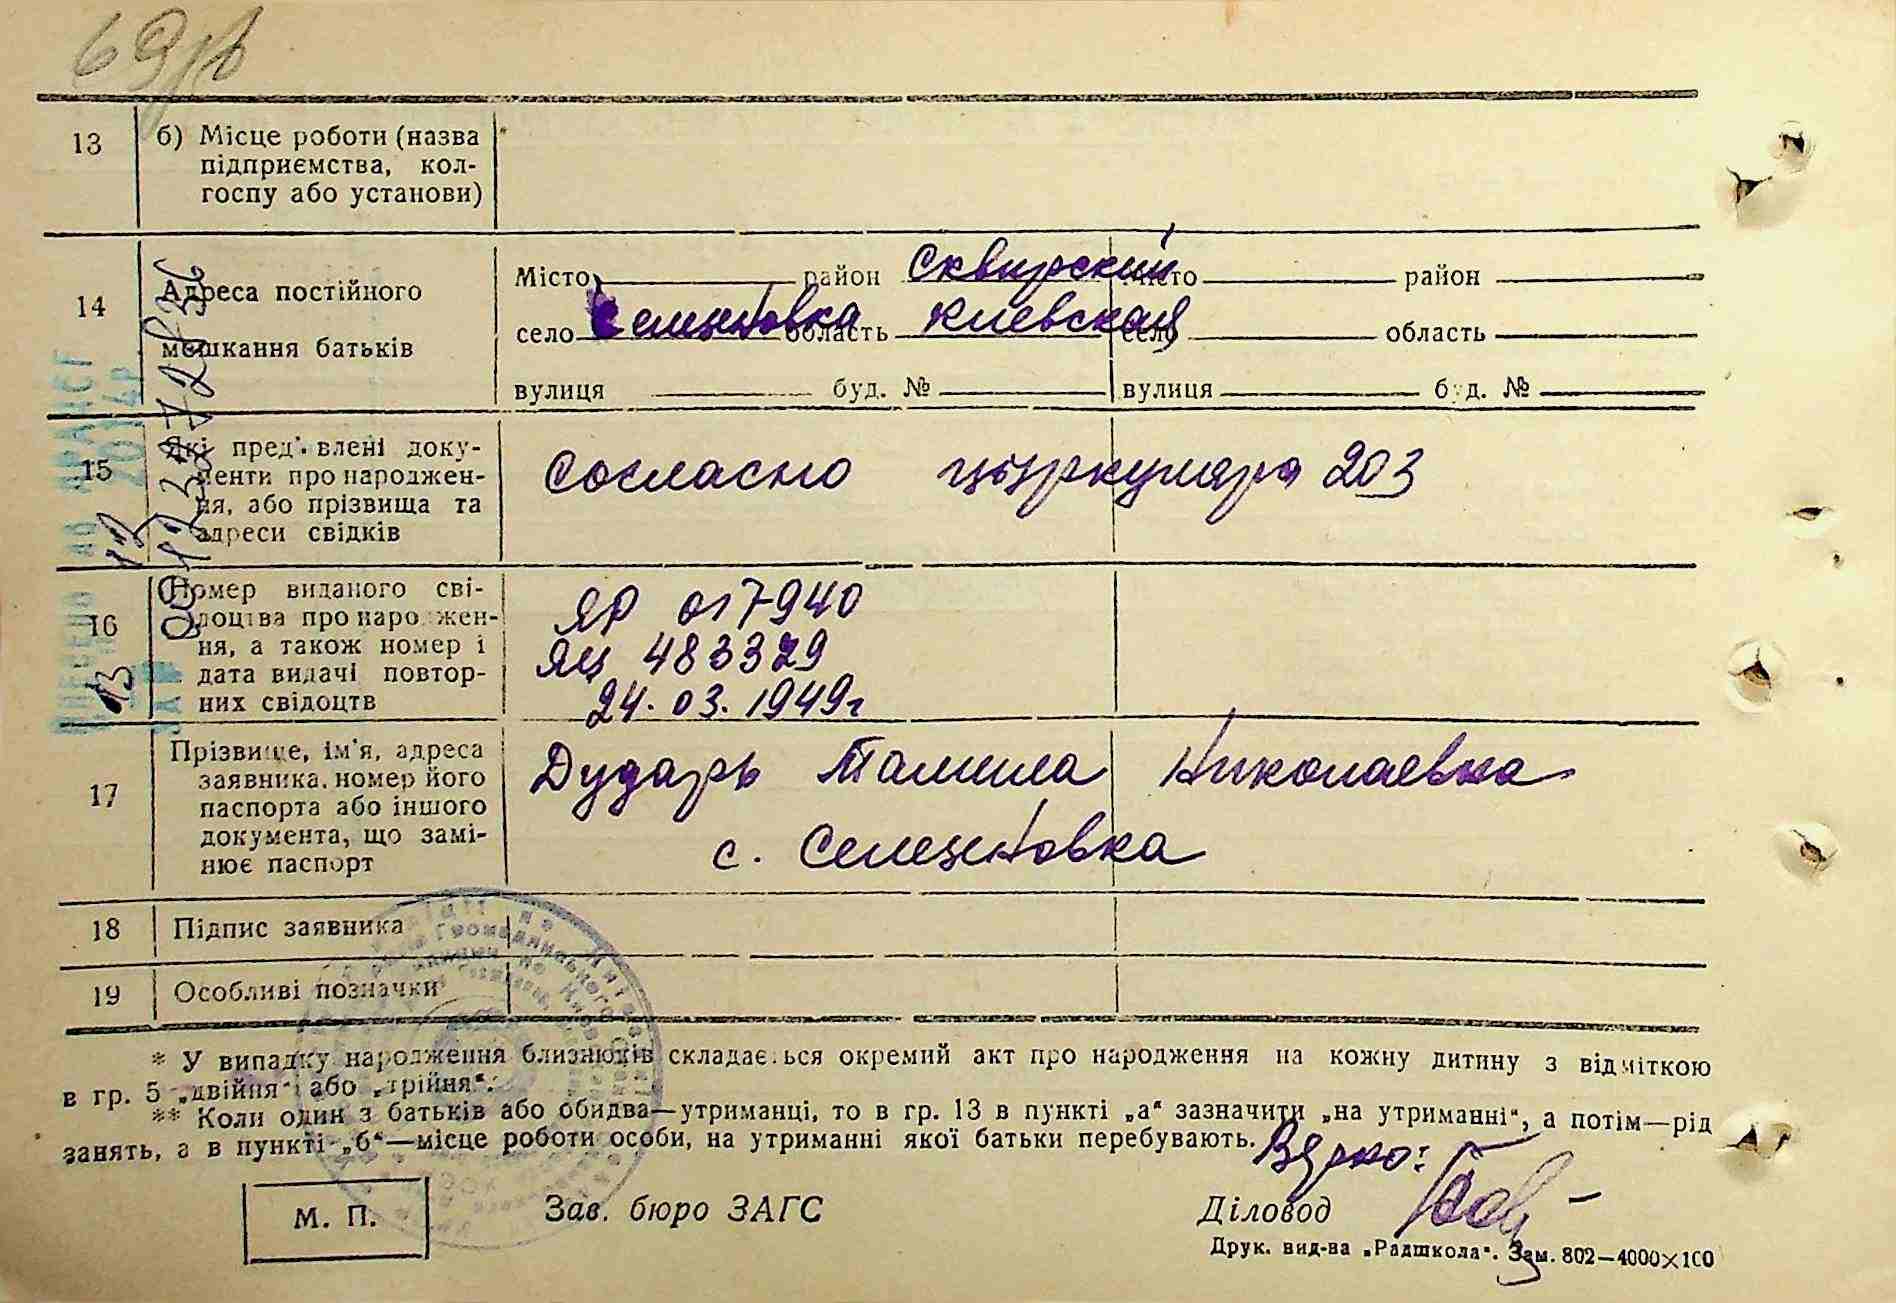 13
б) Місце роботи (назва
підприємства, кол-
госпу або установи)
14
Адреса постійного
мешкання батьків
Місто район Сквирский Місто район
село Селезеновка область Киевская село область
вулиця буд. № вулиця буд. №
15
Які пред'явлені доку-
менти про народжен-
ня, або прізвища та
адреси свідків
Согласно циркуляра 203
16
Номер виданого сві-
доцтва про народжен-
ня, а також номер і
дата видачі повтор-
них свідоцтв
ЯР 017940
ЯЦ 483329
24.03.1949г
17
Прізвище, ім'я, адреса
заявника, номер його
паспорта або іншого
документа, що замі-
нює паспорт
Дударь Тамила Николаевка
с.
18
Підпис заявника
19
Особливі позначки
* У випадку народження близнюків складається окремий акт про народження на кожну дитину з відміткою
в гр. 5 „двійня“ або „трійня“.
** Коли один з батьків або обидва—утриманці, то в гр. 13 в пункті „а“ зазначити „на утриманні“, а потім—рід
занять, а в пункті „б“—місце роботи особи, на утриманні якої батьки перебувають.
М. П.
Зав. бюро ЗАГС
Діловод
Друк. вид-ва „Радшкола“. Зам. 802—4000×100